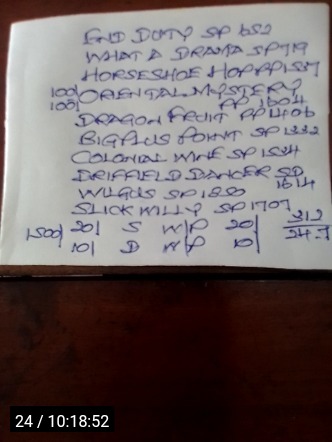 END DUTY SP 652
WHAT A DRAMA SP 719
HORSESHOE HOPP P 1537
100/ ORIENTAL MYSTERY
100/ PP 1604
DRAGON FRUIT PP 1406
BIG PLUS POINT SP 1332
COLONIAL WINE SP 1534
DRIFFIELD DANCER SP
WILGUS SP 1250 1614
SLICK WILLY SP 1707
1500/ 20/ S W/P 20/ 312
10/ D W/P 10/ 24.7
24 / 10:18:52